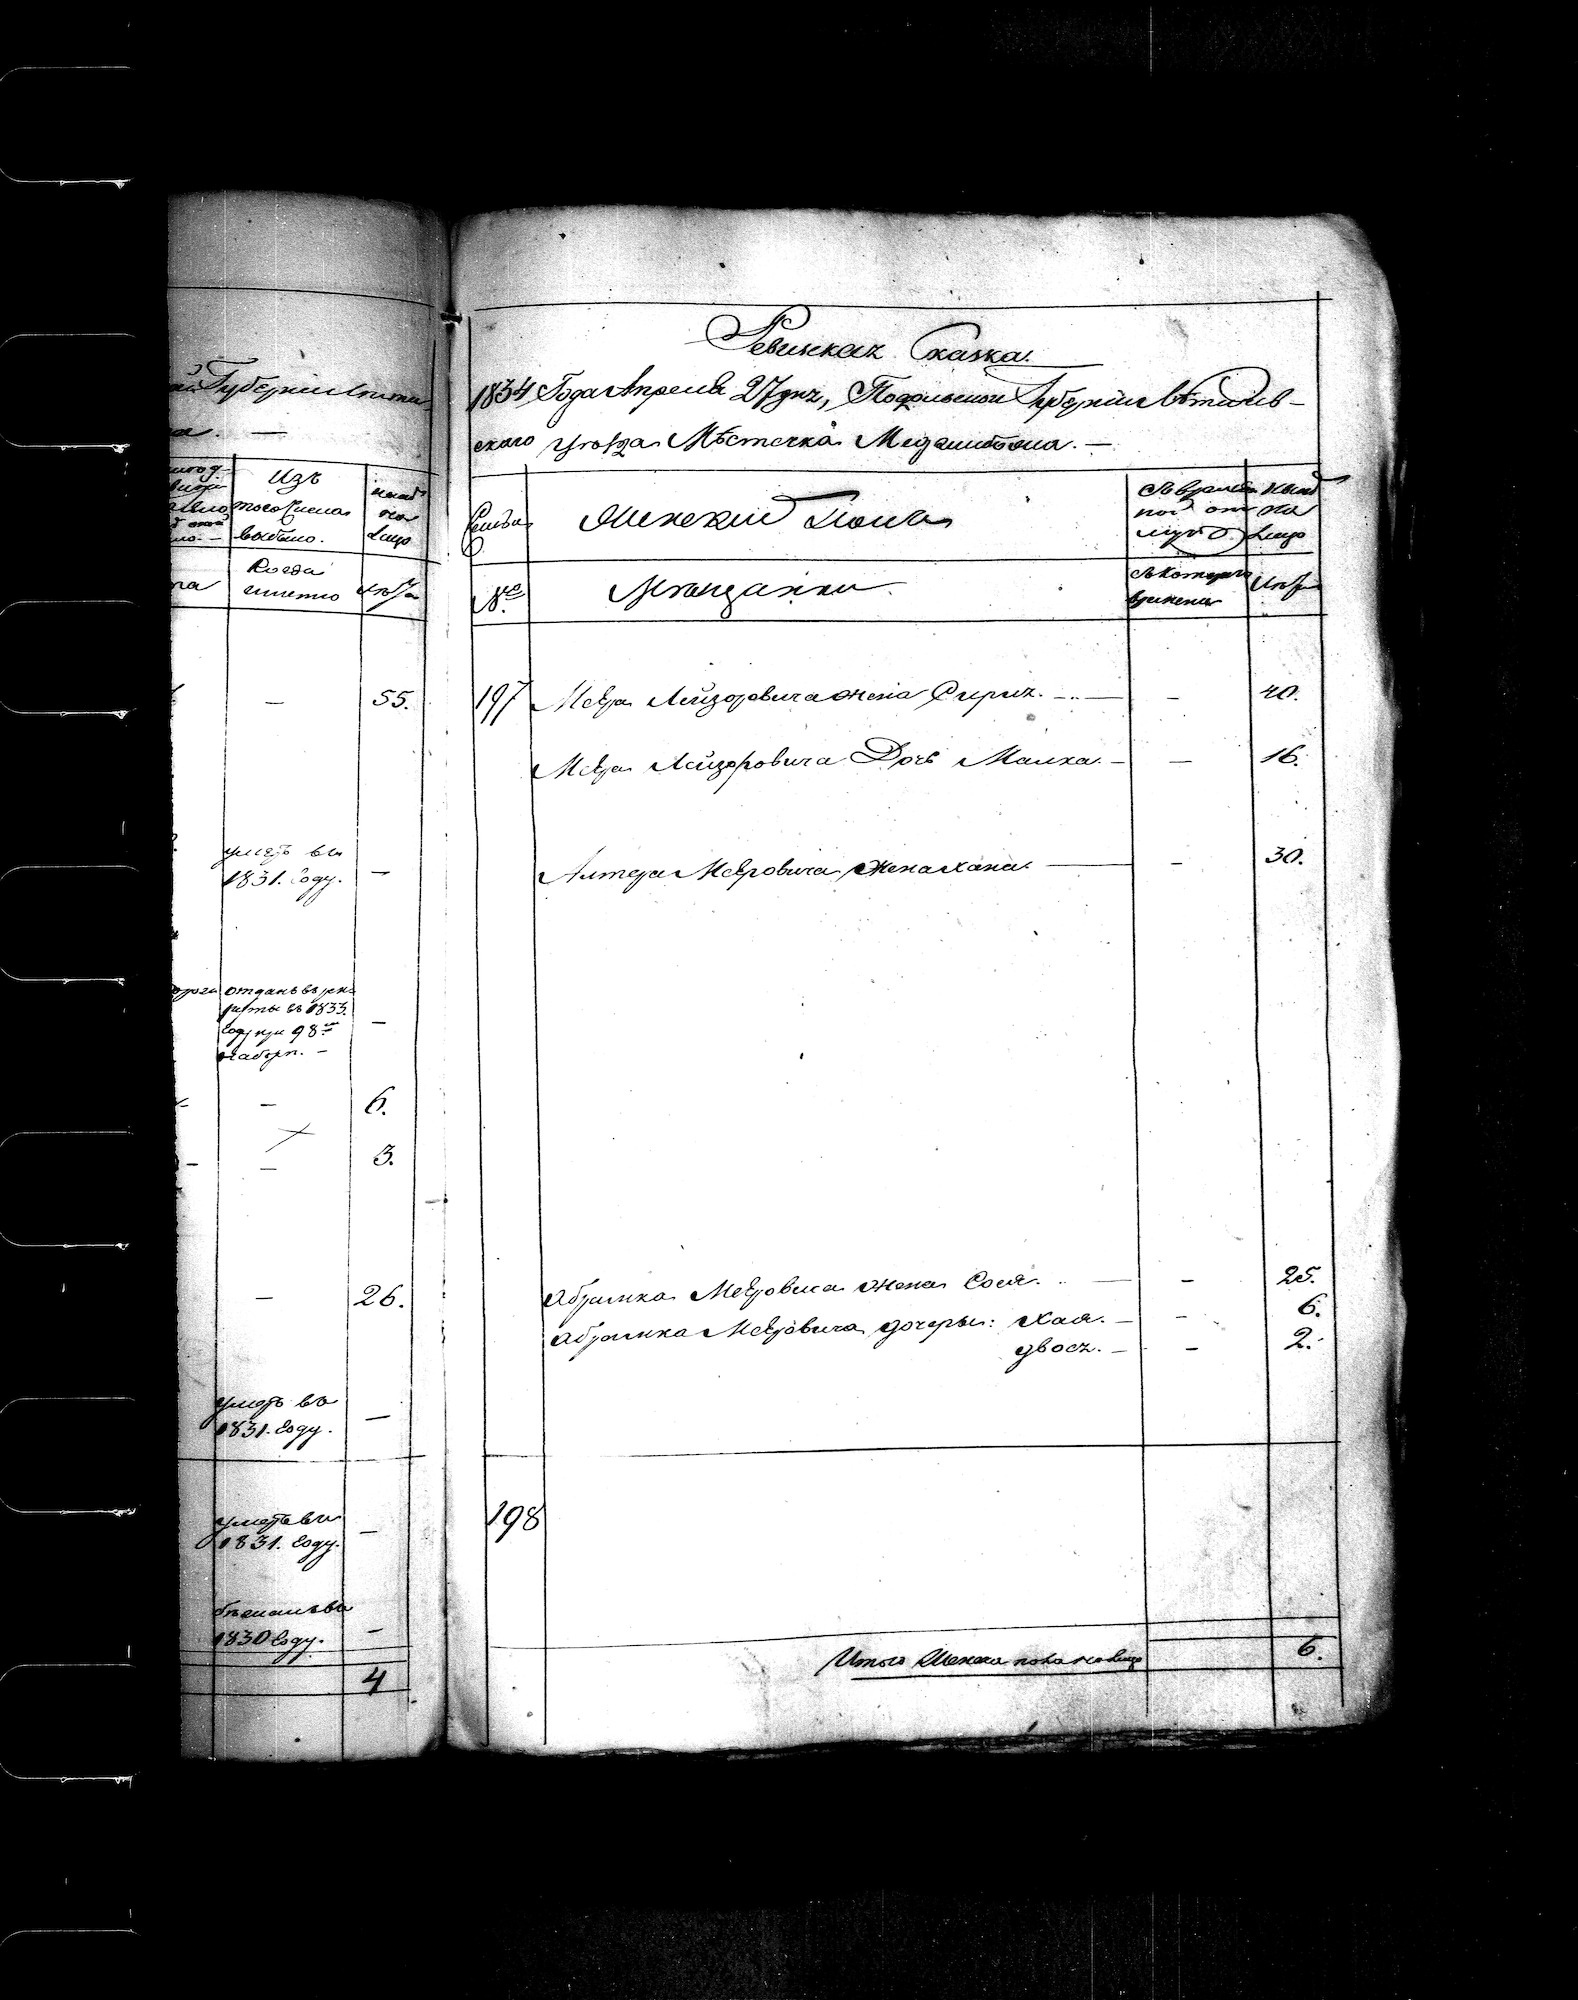 Губерніи Лити
Изъ
того числа
выбыло.
Когда
именно
на
лицо
лѣта
—
55.
умеръ въ
1831. году.
—
отданъ въ рек
руты въ 1833.
году при 98
наборѣ. —
—
—
6.
—
3.
—
26.
умеръ въ
1831. году.
—
умеръ въ
1831. году.
—
бѣжалъ въ
1830 году.
—
4
Ревизская Сказка.
1834 Года Апреля 27 дня, Подольской Губерніи Литин-
скаго уѣзда Мѣстечка
Семья
Женский Полъ
Во времен
ной от
лучкѣ
Нынѣ
на
лицо
№
Мѣщанки
Съ котораго
времени
Лѣта
197 Меера Лейзоровича жена Сирия. — — 40.
Меера Лейзоровича Дочь Малка. — — 16.
Алтера Меeровича Жена Хана. — — 30.
Абрамка Мееровича жена Сося. — — 25.
Абрамка Мееровича дочеры: Хая. — — 6.
Двося. — — 2.
198
Итого Женска пола на лицо 6.